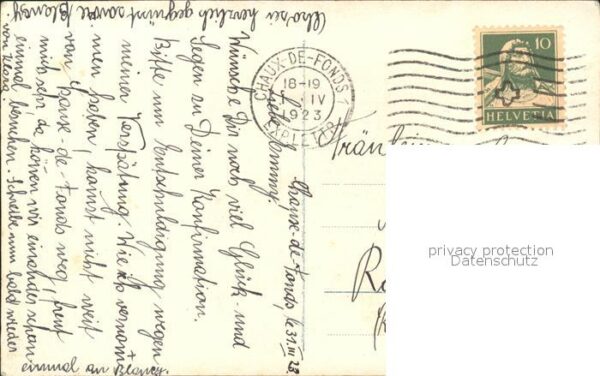 Chaux-de-Fonds, le 31. III 23.
Liebe Emmy.
Wünsche Dir noch viel Glück und
Segen zu Deiner Konfirmation.
Bitte um Entschuldigung wegen
meiner Verspätung. Wie ich vernom-
men haben, kommst nicht weit
von Chaux-de-Fonds weg, freut
mich sehr, da können wir einander schon
einmal besuchen. Schreibe nun bald wieder
Also sei herzlich gegrüsst sowie Blancy
von Klara
CHAUX-DE-FONDS 1
18-19
IV
1923
EXP. LETTR.
10
HELVETIA
Fräulein
privacy protection
Datenschutz